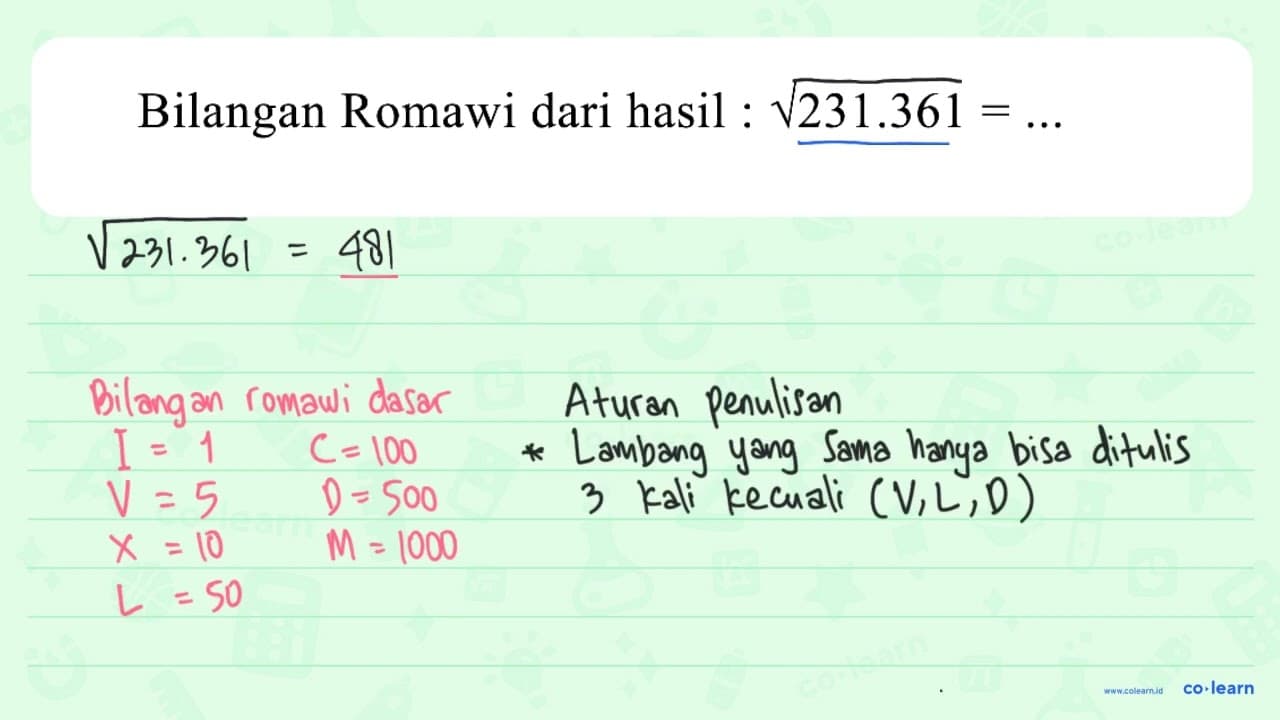 Bilangan Romawi dari hasil : √231.361 = ...
√231.361 = 481
Bilangan romawi dasar
I = 1 C = 100
V = 5 D = 500
X = 10 M = 1000
L = 50
Aturan penulisan
* Lambang yang sama hanya bisa ditulis
3 kali kecuali (V, L, D)
co·learn
co·learn
co·learn
www.colearn.id co·learn